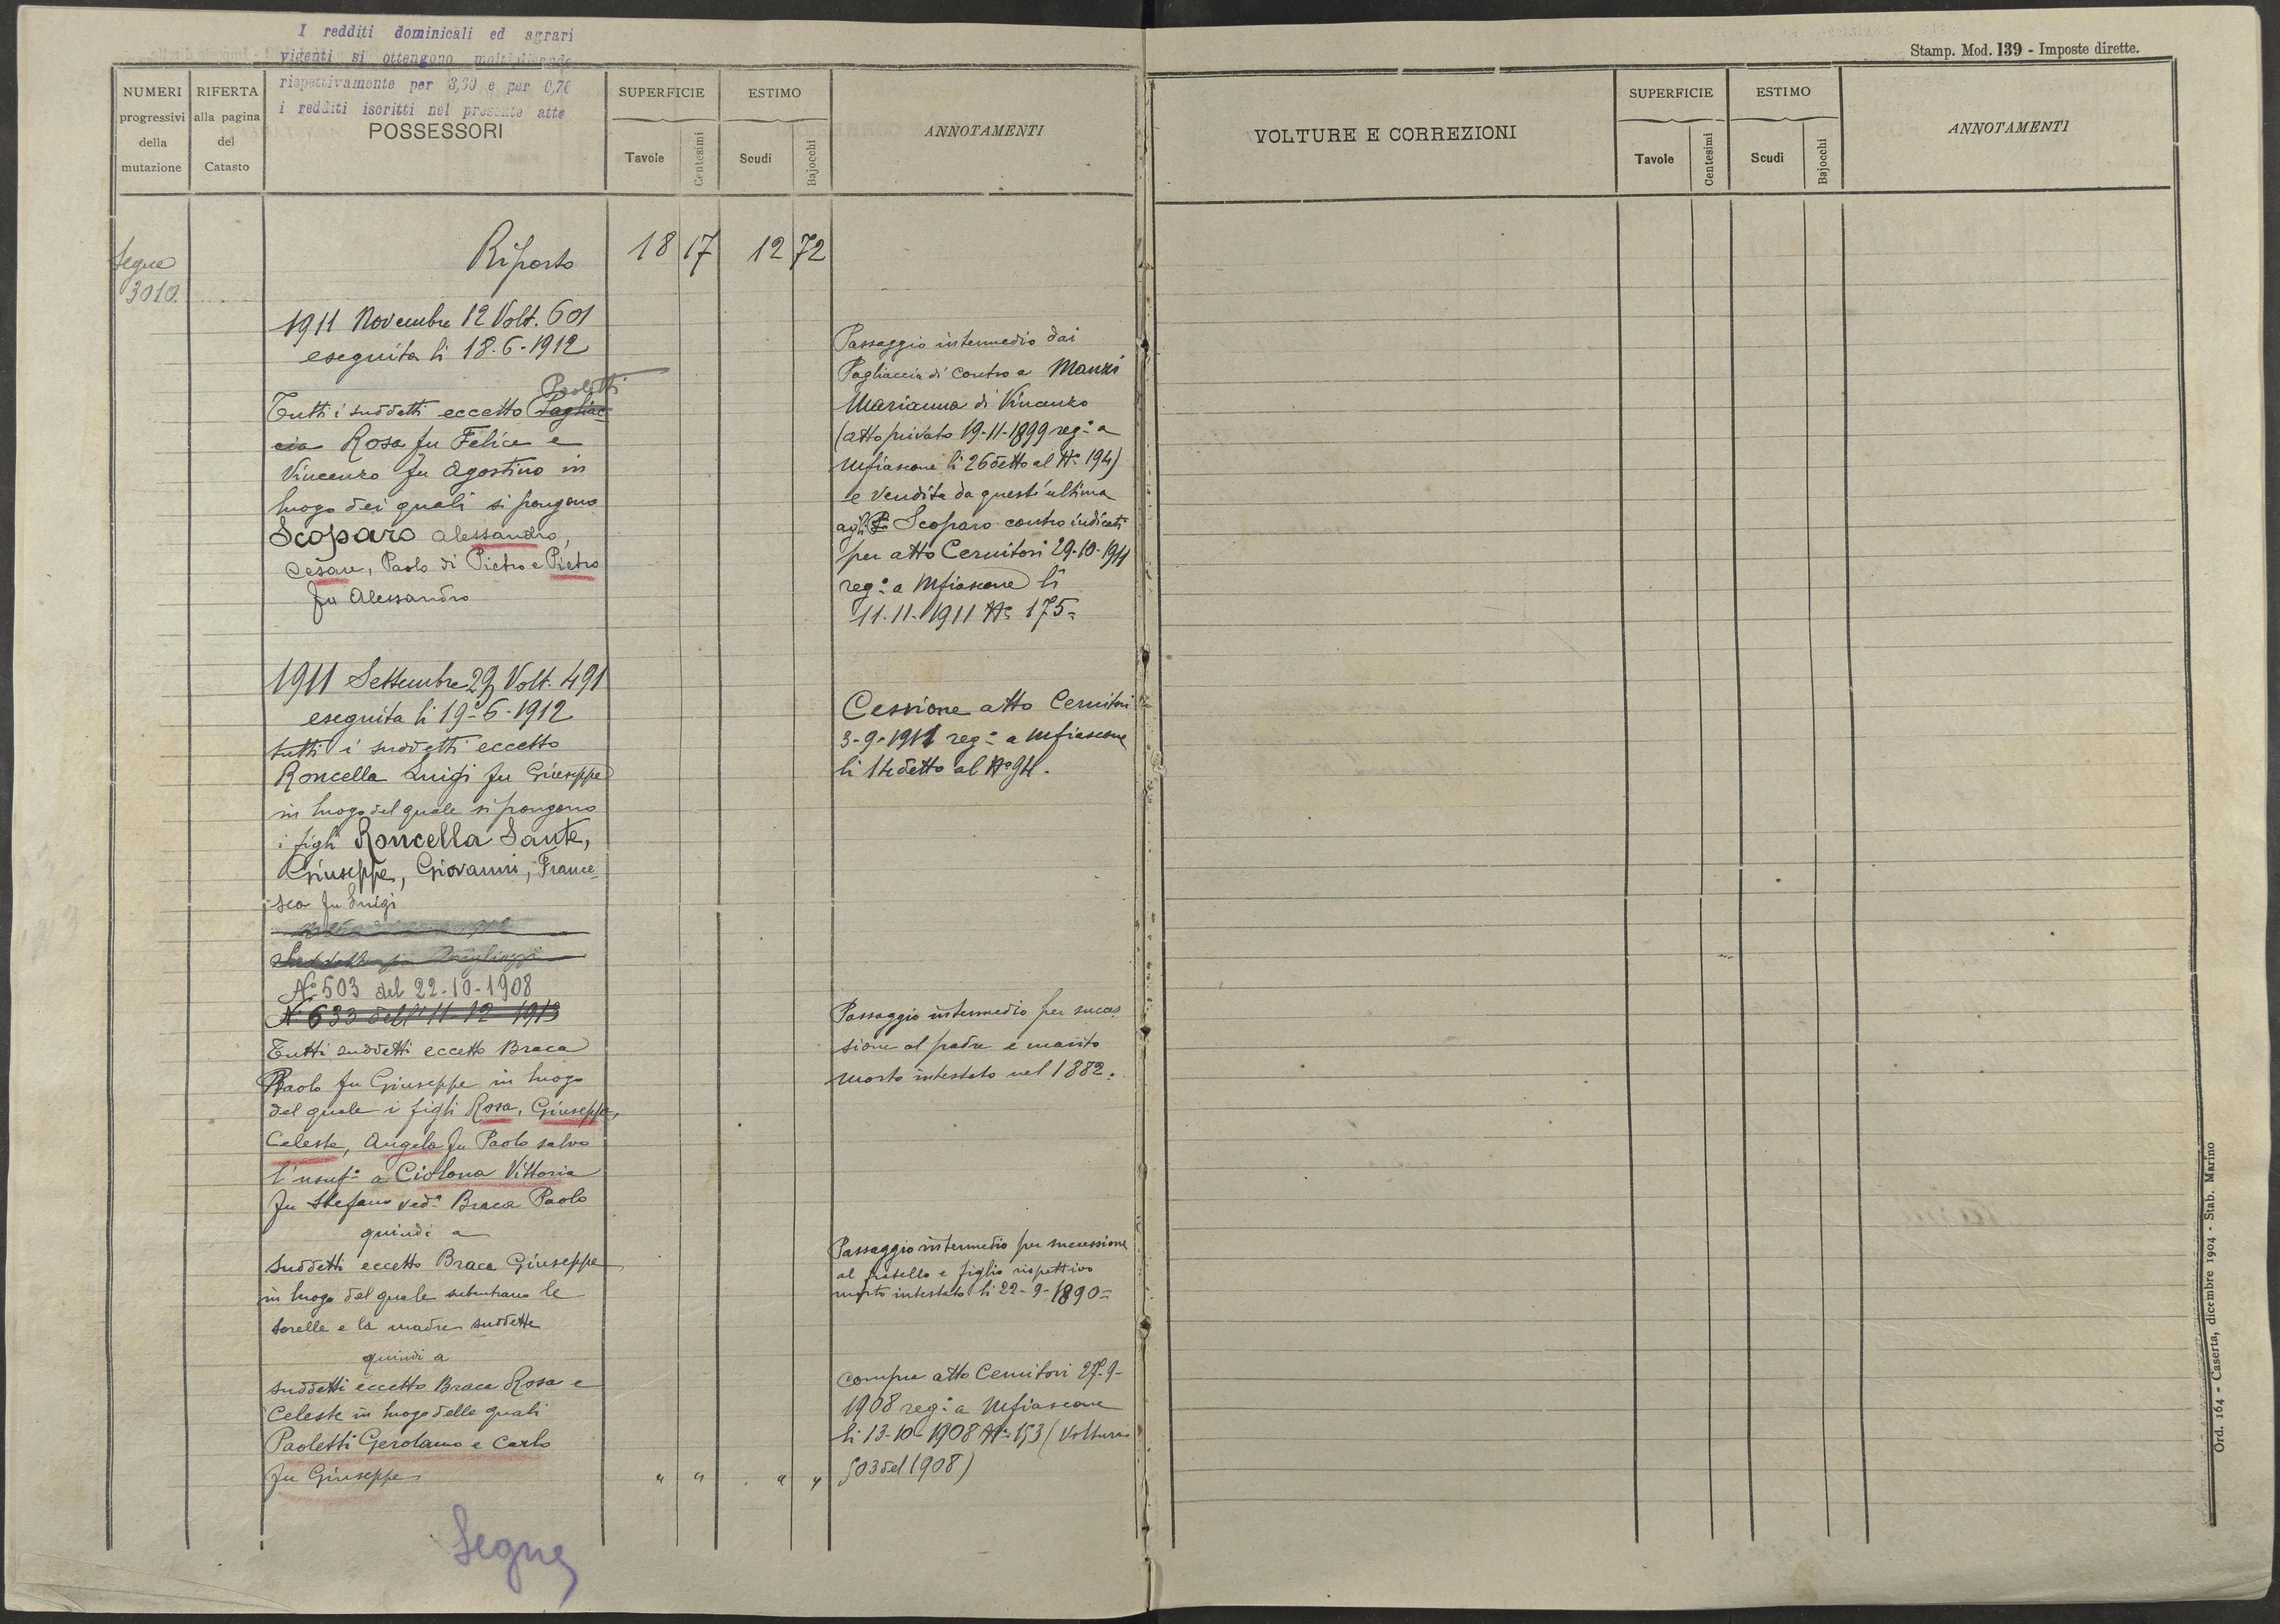 I redditi dominicali ed agrari
vigenti si ottengono moltiplicando
rispettivamente per 3,00 e per 0,70
i redditi iscritti nel presente atto
Stamp. Mod. 139 - Imposte dirette.
NUMERI progressivi della mutazione
RIFERTA alla pagina del Catasto
POSSESSORI
SUPERFICIE
Tavole
Centesimi
ESTIMO
Scudi
Bajocchi
ANNOTAMENTI
VOLTURE E CORREZIONI
SUPERFICIE
Tavole
Centesimi
ESTIMO
Scudi
Bajocchi
ANNOTAMENTI
Segue
3010.
Riporto 18 17 12 72
1911 Novembre 12 Volt. 601
eseguita li 18-6-1912
Paoletti
Tutti i suddetti eccetto Pagliac
cia Rosa fu Felice e
Vincenzo fu Agostino in
luogo dei quali si pongono
Scoparo Alessandro,
Cesare, Paolo di Pietro e Pietro
fu Alessandro
Passaggio intermedio dai
Pagliaccia di contro a Manzi
Marianna di Vincenzo
(atto privato 19-11-1899 reg.° a
Mfiascone li 26 detto al N° 194)
e vendita da quest'ultima
agli Scoparo contro indicati
per atto Cernitori 29-10-1911
reg.° a Mfiascone li
11-11-1911 N° 175=
1911 Settembre 29 Volt. 491
eseguita li 19-6-1912
tutti i suddetti eccetto
Roncella Luigi fu Giuseppe
in luogo del quale si pongono
i figli Roncella Sante,
Giuseppe, Giovanni, France
sca fu Luigi
Cessione atto Cernitori
3-9-1911 reg.° a Mfiascone
li 14 detto al N° 94.
N° 503 del 22-10-1908
N° 633 dell'11-12-1913
Tutti suddetti eccetto Braca
Paolo fu Giuseppe in luogo
del quale i figli Rosa, Giuseppe,
Celeste, Angela fu Paolo salvo
l'usuf.° a Ciolona Vittoria
fu Stefano ved.ª Braca Paolo
quindi a
Suddetti eccetto Braca Giuseppe
in luogo del quale subentrano le
sorelle e la madre suddette
quindi a
suddetti eccetto Braca Rosa e
Celeste in luogo delle quali
Paoletti Gerolamo e Carlo
fu Giuseppe " " " "
Passaggio intermedio per succes
sione al padre e marito
morto intestato nel 1882.
Passaggio intermedio per successione
al fratello e figlio rispettivo
morto intestato li 22-9-1890=
Compra atto Cernitori 27-9-
1908 reg.° a Mfiascone
li 13-10-1908 N° 153 (Voltura
503 del 1908)
Segue
Ord. 164 - Caserta, dicembre 1904 - Stab. Marino